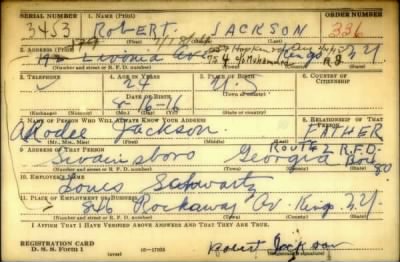 SERIAL NUMBER 1. NAME (Print) ORDER NUMBER
3453 ROBERT JACKSON 336
(First) (Middle) (Last)
2. ADDRESS (Print)
Livonia Av
(Number and street or R. F. D. number) (Town) (County) (State)
3. TELEPHONE 4. AGE IN YEARS 5. PLACE OF BIRTH 6. COUNTRY OF CITIZENSHIP
24
DATE OF BIRTH
8-16-16
(Exchange) (Number) (Mo.) (Day) (Yr.) (State or country)
7. NAME OF PERSON WHO WILL ALWAYS KNOW YOUR ADDRESS 8. RELATIONSHIP OF THAT PERSON
Jackson FATHER
(Mr., Mrs., Miss) (First) (Middle) (Last)
9. ADDRESS OF THAT PERSON ROUTE 2 R.F.D.
Swainsboro Georgia Box 80
(Number and street or R. F. D. number) (Town) (County) (State)
10. EMPLOYER'S NAME
Louis Schwartz
11. PLACE OF EMPLOYMENT OR BUSINESS
846 Rockaway Av. Kings N.Y.
(Number and street or R. F. D. number) (Town) (County) (State)
I AFFIRM THAT I HAVE VERIFIED ABOVE ANSWERS AND THAT THEY ARE TRUE.
REGISTRATION CARD
D. S. S. Form 1 (over) 16-17105 Robert Jackson